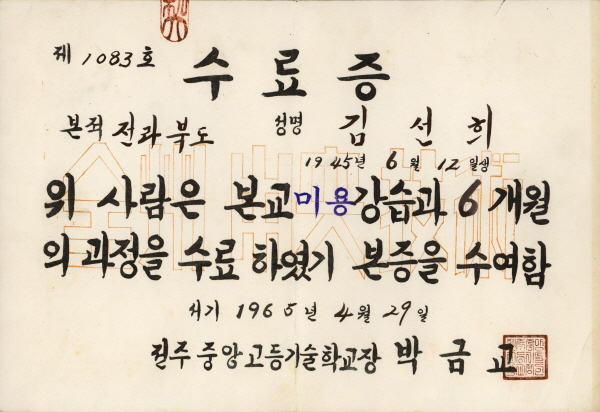 제 1083 호
수료증
본적 전라북도 성명 김선희
1945년 6월 12일생
위 사람은 본교 미용강습과 6개월
의 과정을 수료하였기 본증을 수여함
서기 1965년 4월 29일
전주중앙고등기술학교장 박금교